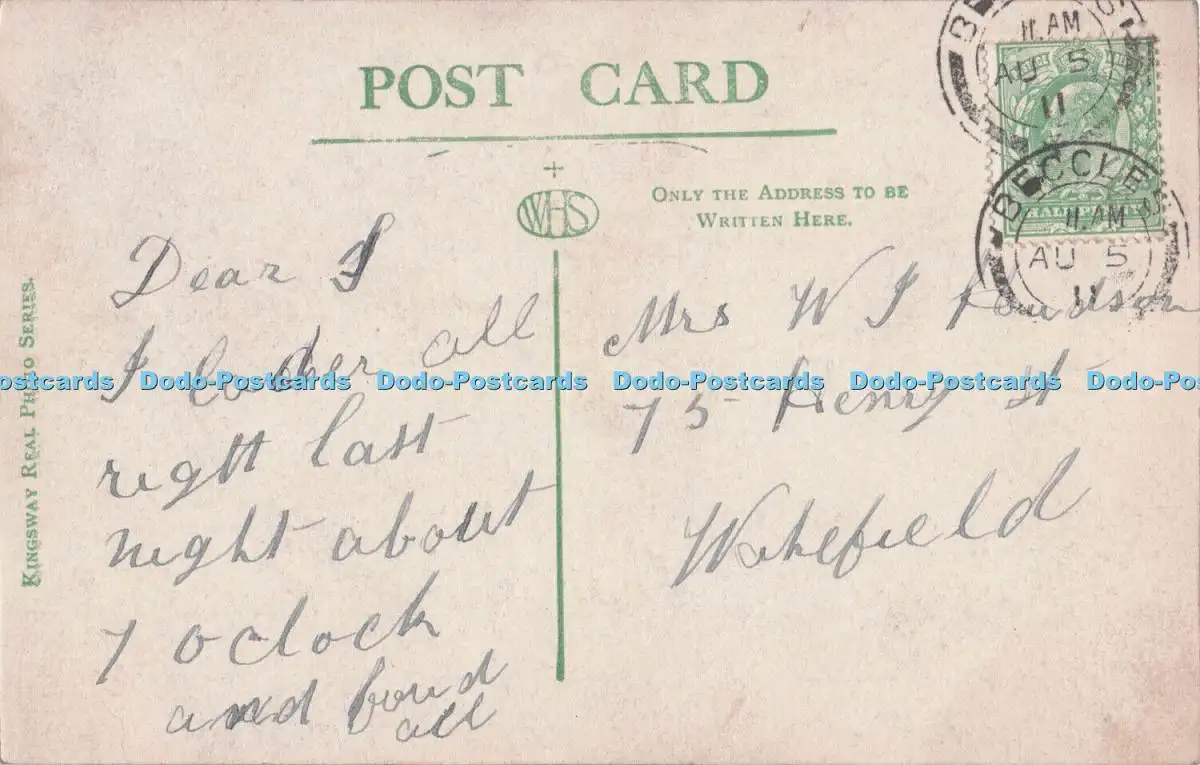 POST CARD
WHS
ONLY THE ADDRESS TO BE
WRITTEN HERE.
KINGSWAY REAL PHOTO SERIES.
BECCLES
11.AM
AU 5
11
BECCLES
11.AM
AU 5
11
HALFPENNY
Dear
I all
right last
night about
7 oclock
and found
all
Mrs W J
75 Henry St
Wakefield
Dodo-Postcards Dodo-Postcards Dodo-Postcards Dodo-Postcards Dodo-Postcards Dodo-Postcards